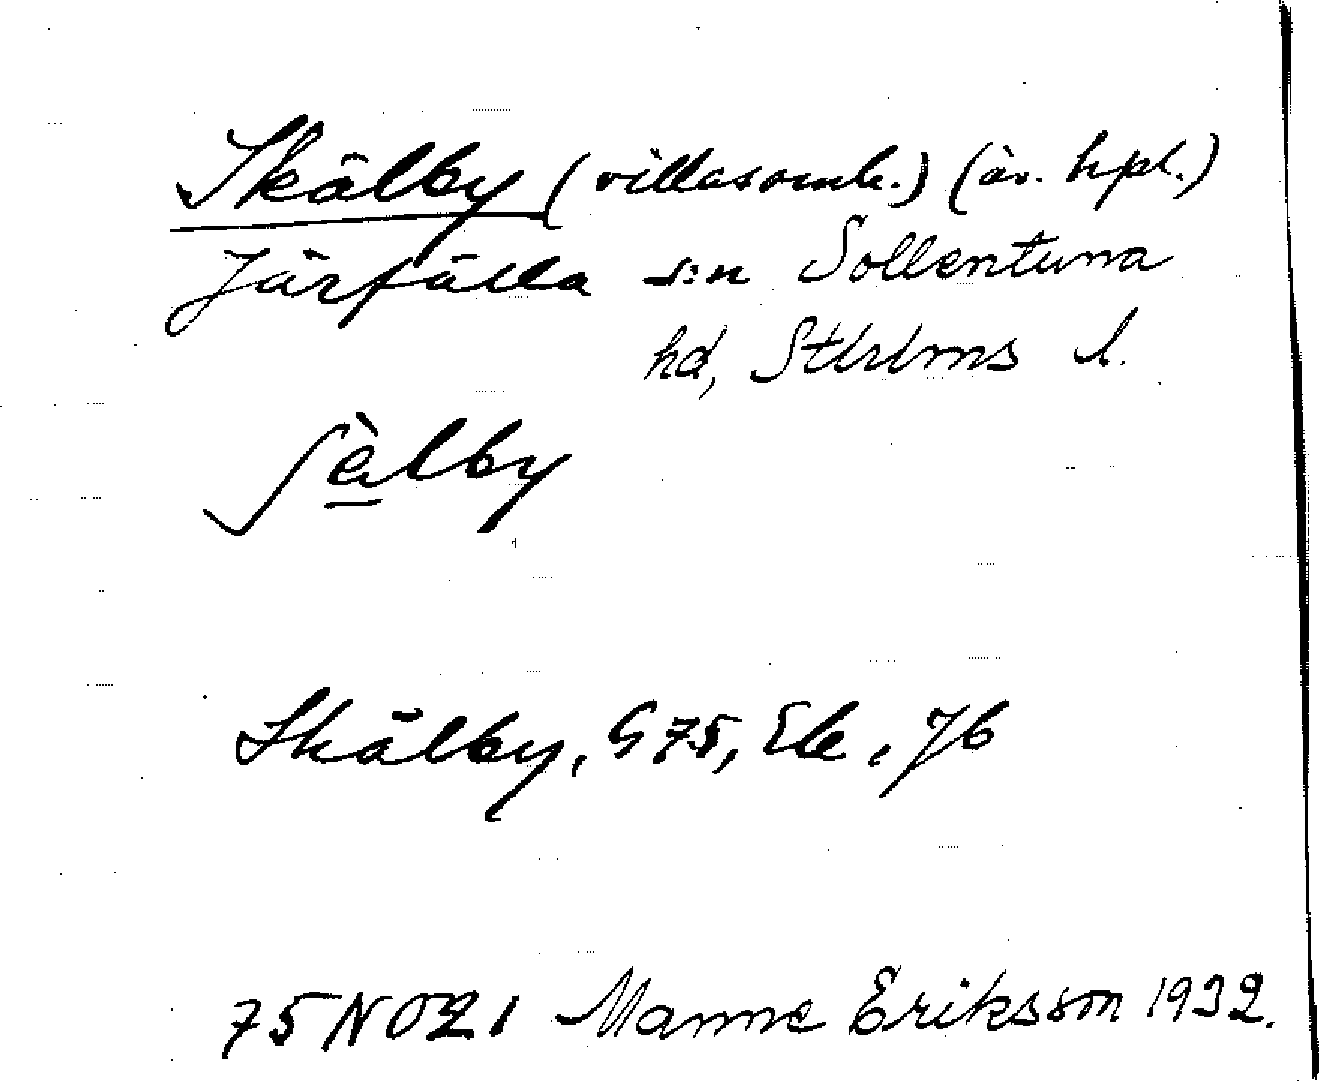 Skälby (villasamh.) (äv. hpl.)
Järfälla s:n Sollentuna
hd, Sthlms l.
ʃèlby
Skälby, G 75, Ek, J6
75 NO21 Manne Eriksson 1932.